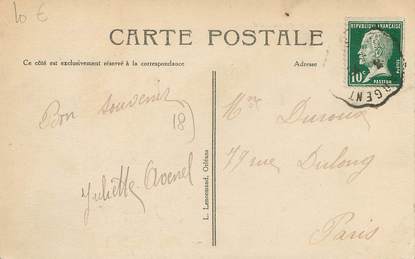 10 €
CARTE POSTALE
Ce côté est exclusivement réservé à la correspondance
Adresse
REPUBLIQUE FRANÇAISE
10c
POSTES
PASTEUR
ARGENT
Bon souvenir
18
Juliette Avenel
L. Lenormand, Orléans
Mme Duroux
79 rue Dulong
Paris